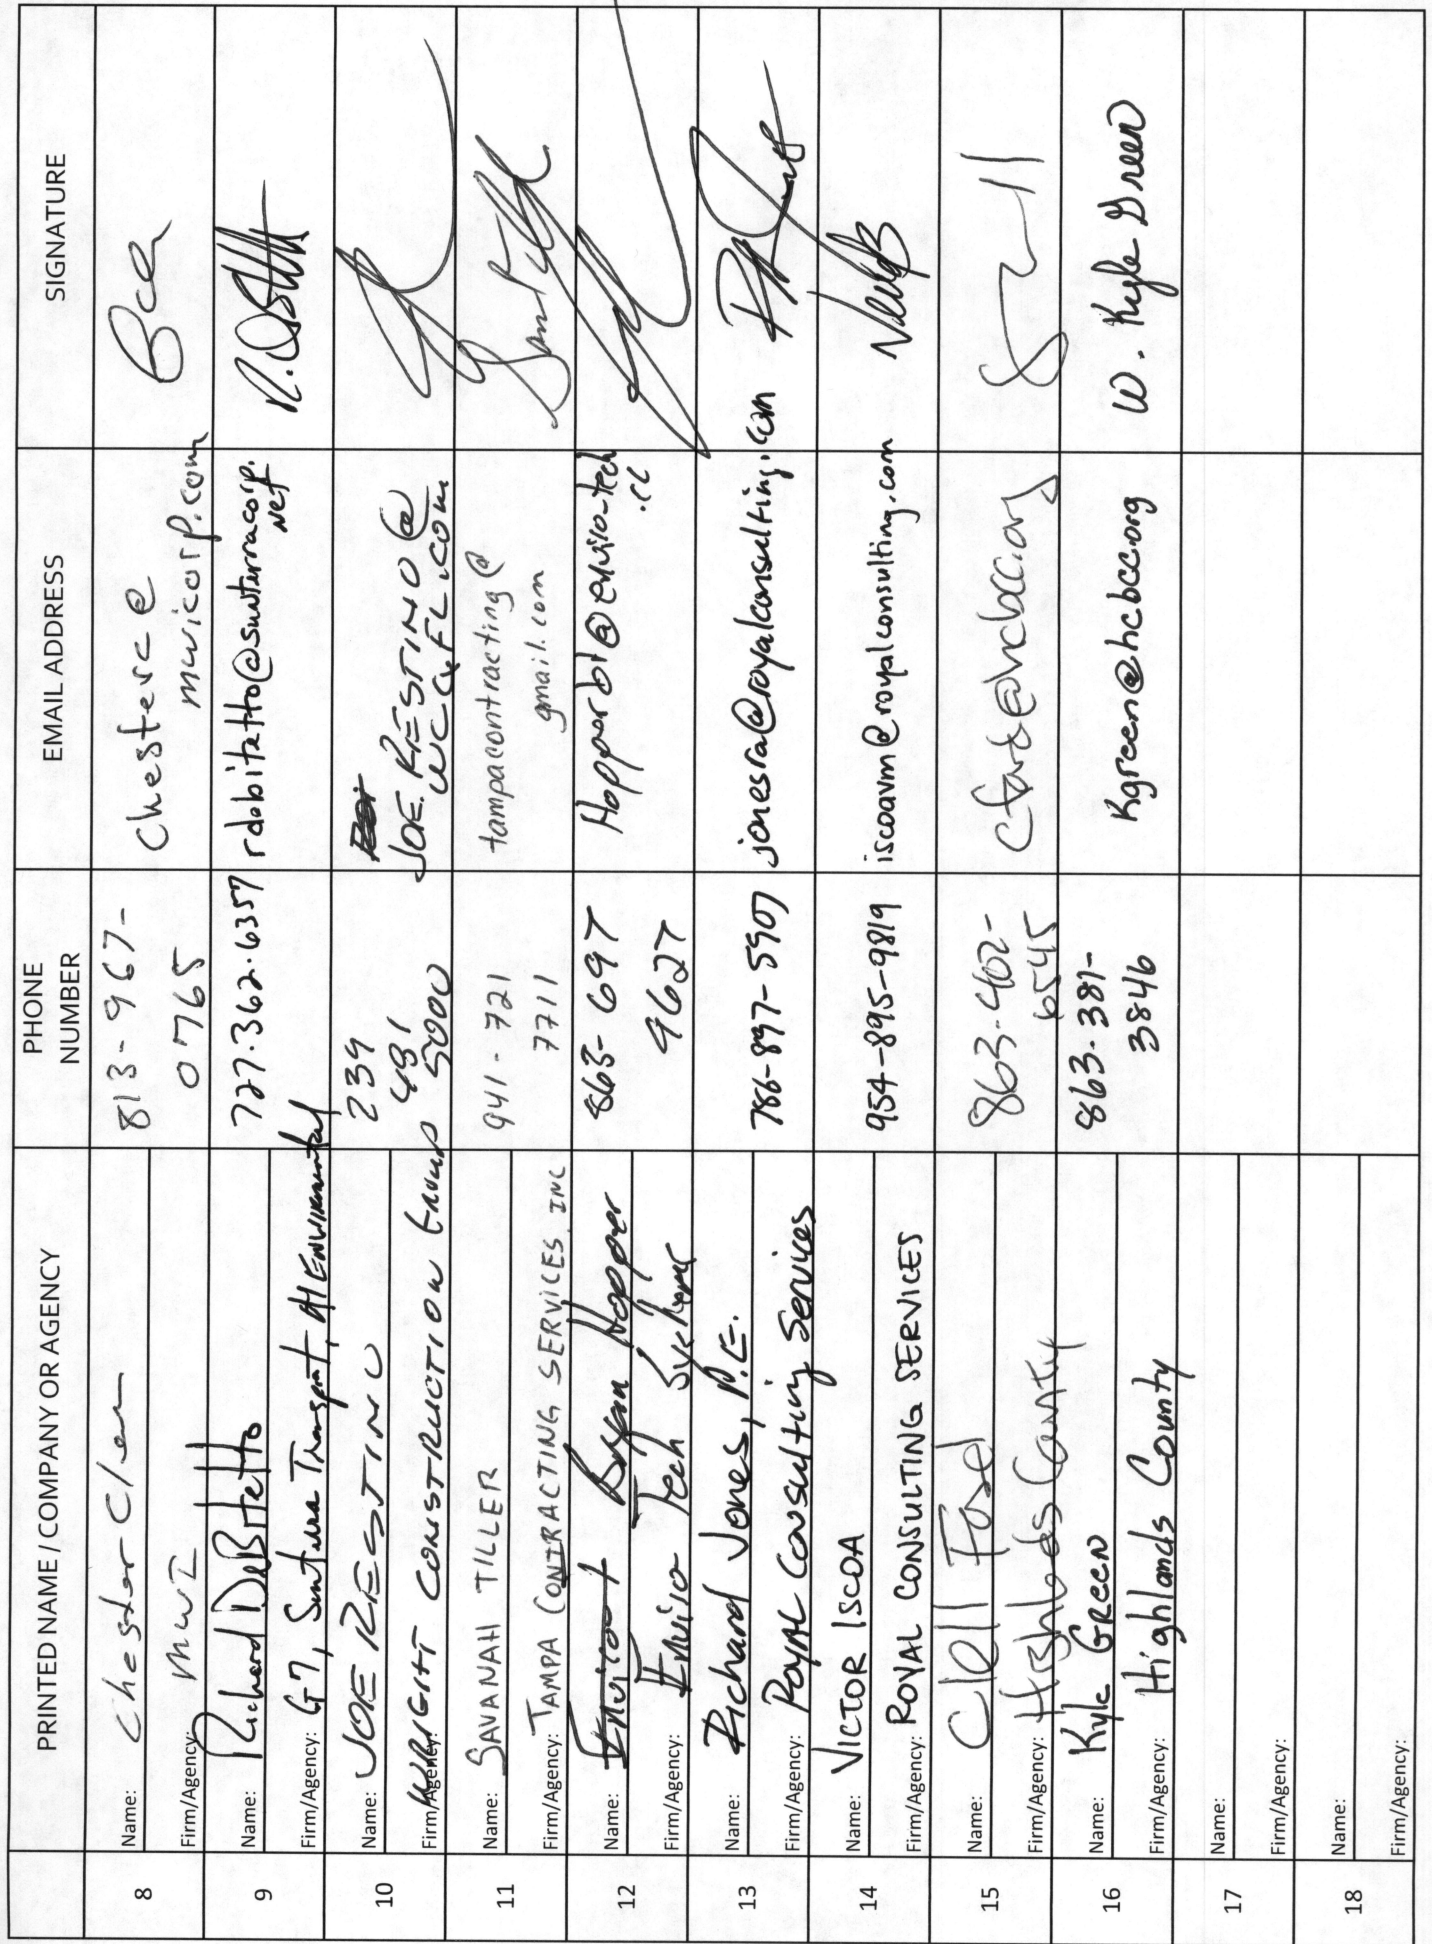 PRINTED NAME / COMPANY OR AGENCY
PHONE
NUMBER
EMAIL ADDRESS
SIGNATURE
8
Name: Chester Clem
Firm/Agency: MWI
813-967-
0765
Chesterc@
mwicorp.com
9
Name: Richard DeBitetto
Firm/Agency: G7, Sunterra Transport, A1 Environmental
727.362.6357
rdebitetto@sunterracorp.
net
10
Name: JOE RESTINO
Firm/Agency: WRIGHT CONSTRUCTION GROUP
239
481
5000
JOE.RESTINO@
WCGFL.COM
11
Name: SAVANAH TILLER
Firm/Agency: TAMPA CONTRACTING SERVICES, INC
941-721
7711
tampacontracting@
gmail.com
12
Name: Bryan Hopper
Firm/Agency: Enviro Tech Systems
863-697
9627
@enviro-tech
.cc
13
Name: Richard Jones, P.E.
Firm/Agency: Royal Consulting Services
786-897-5907
jonesra@royalconsulting.com
14
Name: VICTOR ISCOA
Firm/Agency: ROYAL CONSULTING SERVICES
954-895-9819
iscoavm@royalconsulting.com
15
Name: Clell Ford
Firm/Agency: Highlands County
863-402-
6545
cford@hcbcc.org
16
Name: Kyle Green
Firm/Agency: Highlands County
863-381-
3846
Kgreen@hcbcc.org
W. Kyle Green
17
Name:
Firm/Agency:
18
Name:
Firm/Agency: